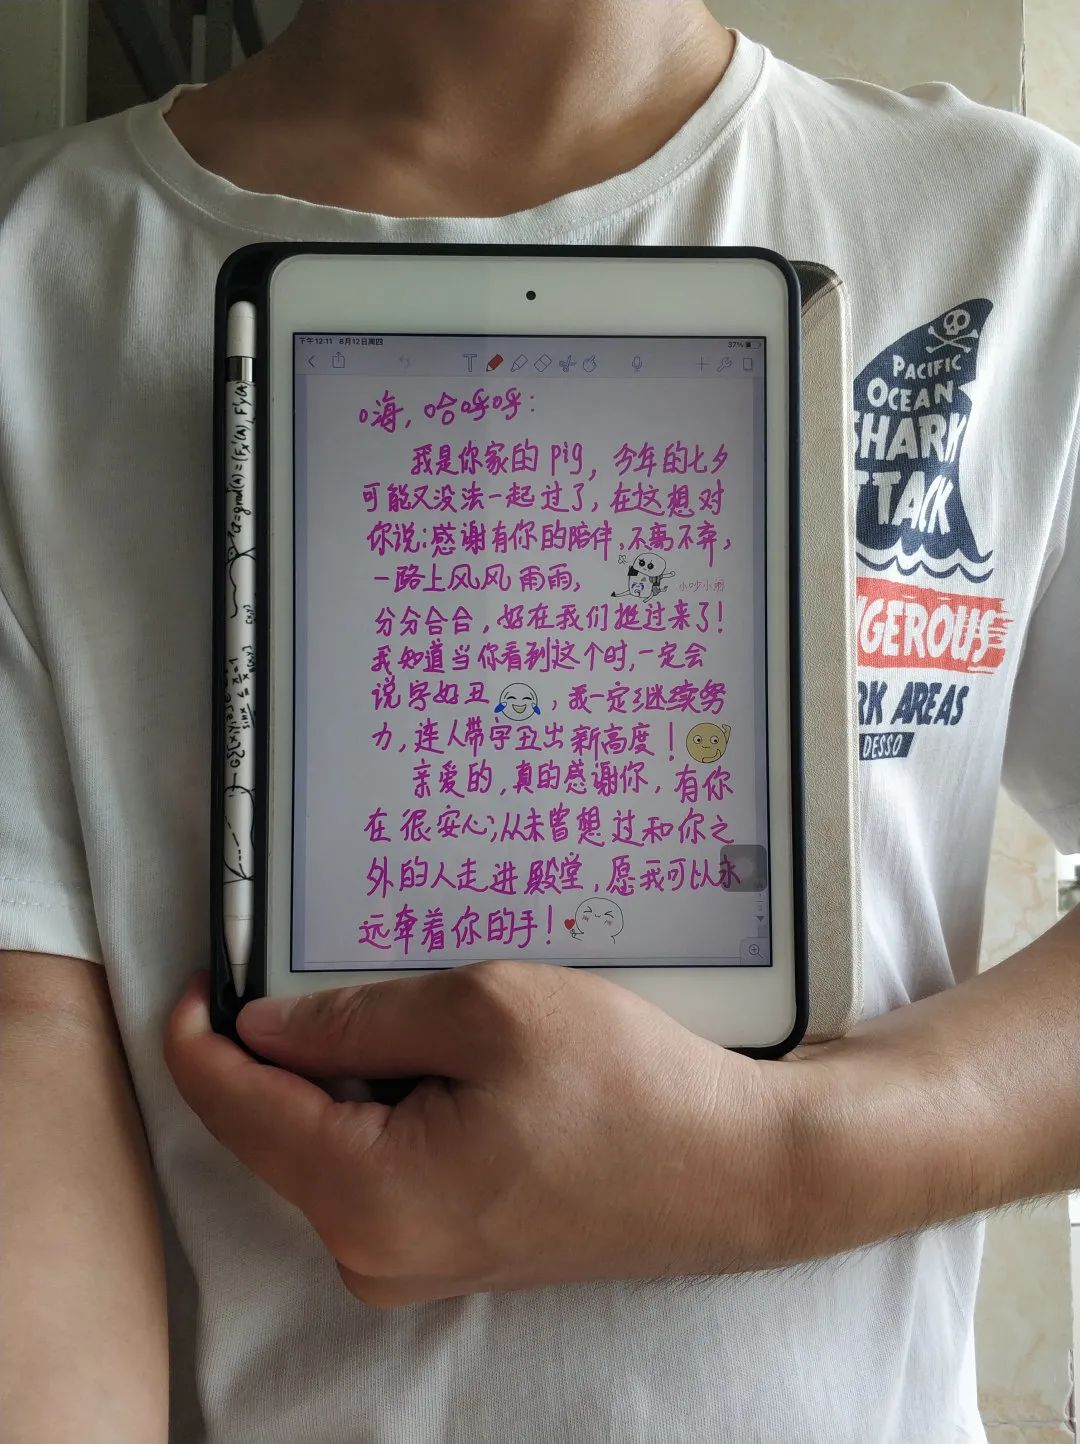 下午12:11 8月12日周四
37%
嗨，哈呼呼：
我是你家的pig，今年的七夕
可能又没法一起过了，在这想对
你说：感谢有你的陪伴，不离不弃，
一路上风风雨雨，
小吵小闹
分分合合，好在我们挺过来了！
我知道当你看到这个时，一定会
说字好丑，我一定继续努
力，连人带字丑出新高度！
亲爱的，真的感谢你，有你
在很安心；从未曾想过和你之
外的人走进殿堂，愿我可以永
远牵着你的手！
PACIFIC
OCEAN
SHARK
TTACK
NGEROUS
RK AREAS
DESSO